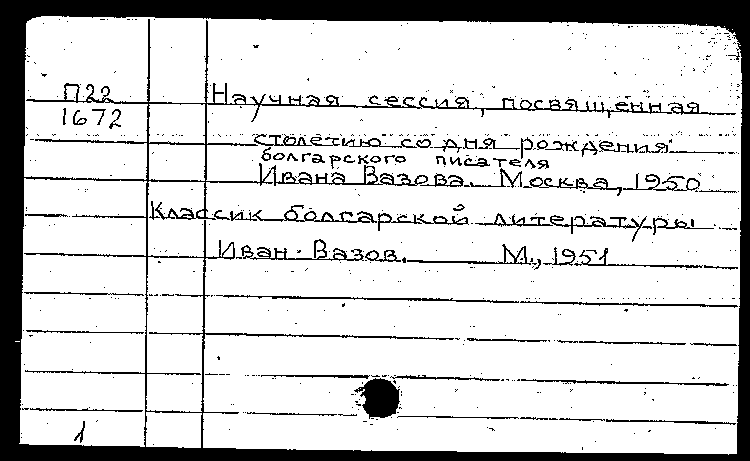 П22
1672
Научная сессия, посвященная
столетию со дня рождения
болгарского писателя
Ивана Вазова. Москва, 1950
Классик болгарской литературы
Иван Вазов. М., 1951
1